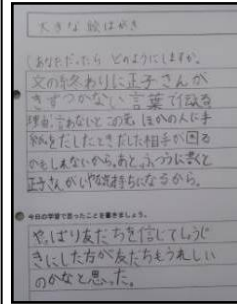 大きな絵はがき
あなただったら どのようにしますか。
文の終わりに正子さんが
きずつかない言葉で伝える
理由 言わないとこの先、ほかの人に手
紙をだしたときだした相手が困る
かもしれないから。あと、ふつうに書くと
正子さんがいやな気持ちになるから。
今日の学習で思ったことを書きましょう。
やっぱり友だちを信じてしょうじ
きにした方が友だちもうれしい
のかなと思った。